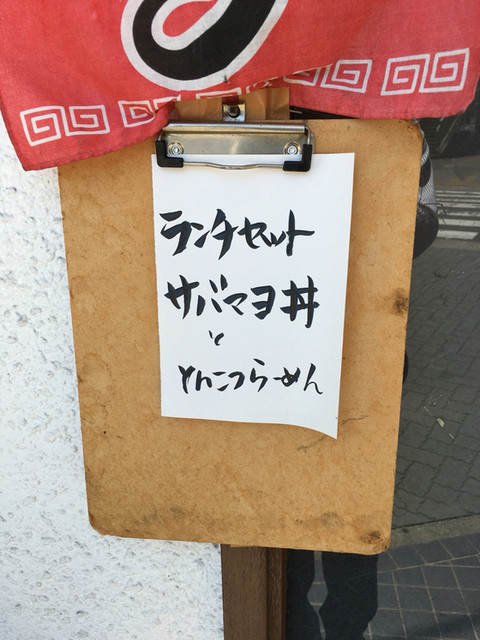 ランチセット
サバマヨ丼
と
とんこつらーめん